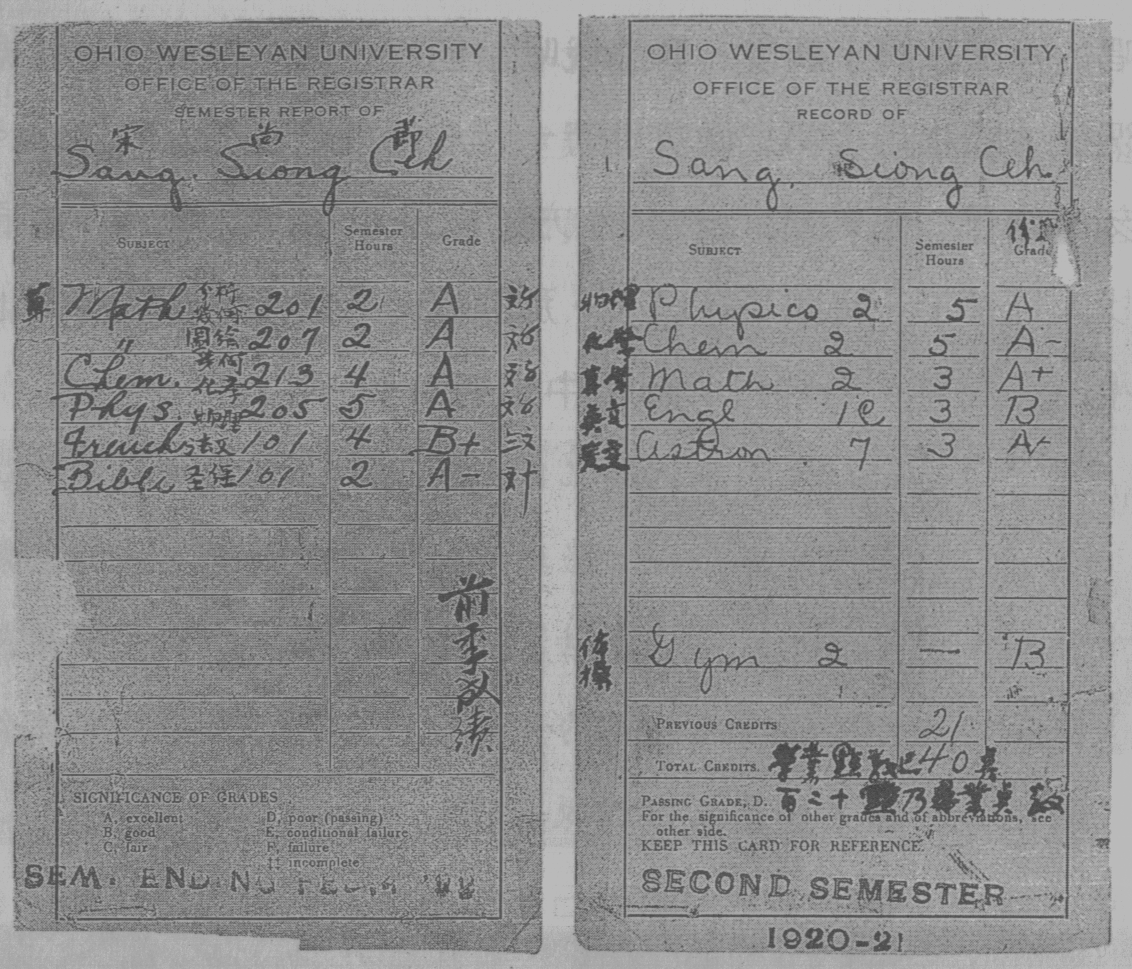 OHIO WESLEYAN UNIVERSITY
OFFICE OF THE REGISTRAR
SEMESTER REPORT OF
宋 尚 節
Sang, Siong Ceh
SUBJECT Semester Hours Grade
算 Math 解析幾何 201 2 A
" 圖繪幾何 207 2 A
Chem. 化学 213 4 A
Phys. 物理 205 5 A
French 法文 101 4 B+
Bible 圣経 101 2 A-
前季成績
SIGNIFICANCE OF GRADES
A, excellent D, poor (passing)
B, good E, conditional failure
C, fair F, failure
‡‡ incomplete
SEM. ENDING FEB.
OHIO WESLEYAN UNIVERSITY
OFFICE OF THE REGISTRAR
RECORD OF
Sang, Siong Ceh
SUBJECT Semester Hours Grade
物理 Physics 2 5 A
化學 Chem 2 5 A-
算學 Math 2 3 A+
英文 Engl 1C 3 B
Astron 7 3 A-
体操 Gym 2 — B
PREVIOUS CREDITS 21
TOTAL CREDITS. 學業點數已40
PASSING GRADE, D. 百二十點乃畢業點數
For the significance of other grades and of abbreviations, see
other side.
KEEP THIS CARD FOR REFERENCE.
SECOND SEMESTER
1920-21